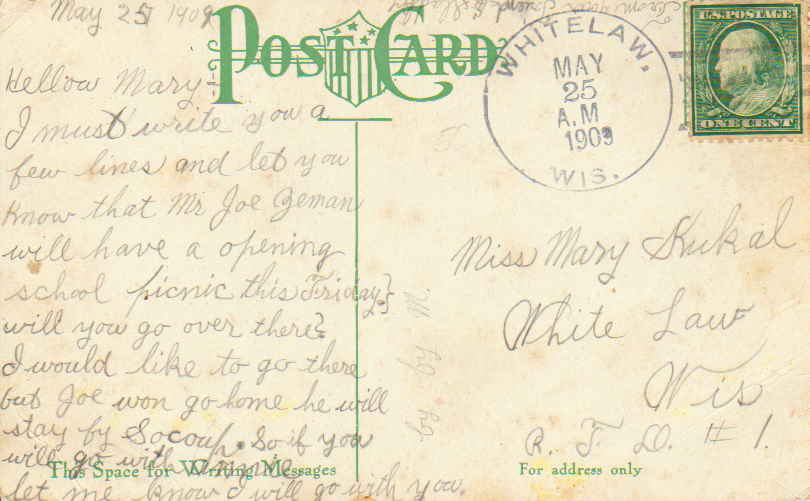 May 25 1909
POST CARD
WHITELAW.
MAY
25
A.M
1909
WIS.
U.S. POSTAGE
ONE CENT
Hellow Mary
I must write you a
few lines and let you
know that Mr Joe Zeman
will have a opening
school picnic this Friday
will you go over there?
I would like to go there
but Joe won go home he will
stay by So if you
will go with
let me know I will go with you.
This Space for Writing Messages
Miss Mary Kukal
White Law
Wis
R. F. D. # 1.
For address only